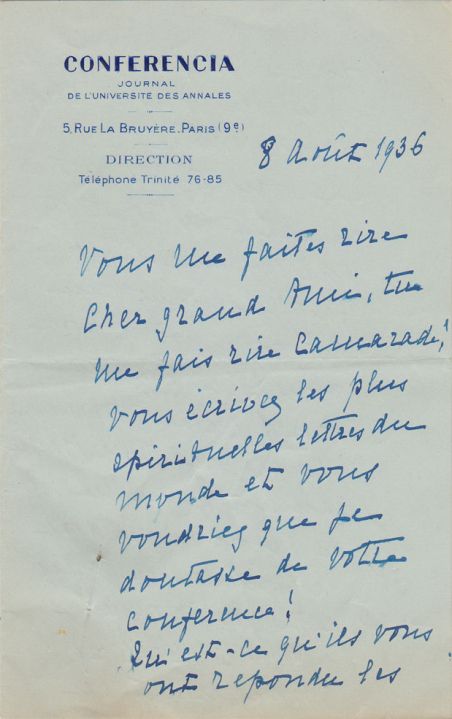 CONFERENCIA
JOURNAL
DE L'UNIVERSITÉ DES ANNALES
5, RUE LA BRUYÈRE. PARIS (9e)
DIRECTION
Téléphone Trinité 76-85
8 Août 1936
Vous me faites rire
Cher grand Ami, tu
me fais rire Camarade!
vous écrivez les plus
spirituelles lettres du
monde et vous
voudriez que je
doutasse de votre
conference!
Qu'est-ce qu'ils vous
ont repondu les